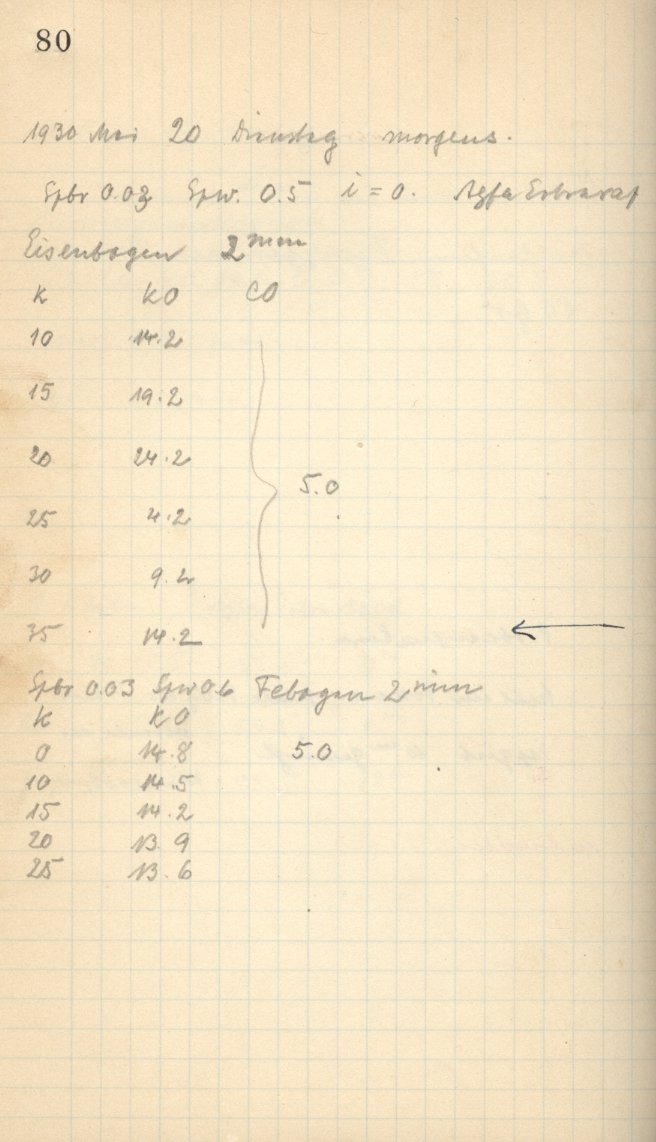 80
1930 Mai 20 Dienstag morgens.
Spbr 0.03 Spw. 0.5 i = 0. Agfa
Eisenbogen 2 min
K KO CO
10 14.2
15 19.2
20 24.2
5.0
25 4.2
30 9.2
35 14.2 ←
Spbr 0.03 Spw 0.6 Febogen 2 min
K KO
0 14.8 5.0
10 14.5
15 14.2
20 13.9
25 13.6